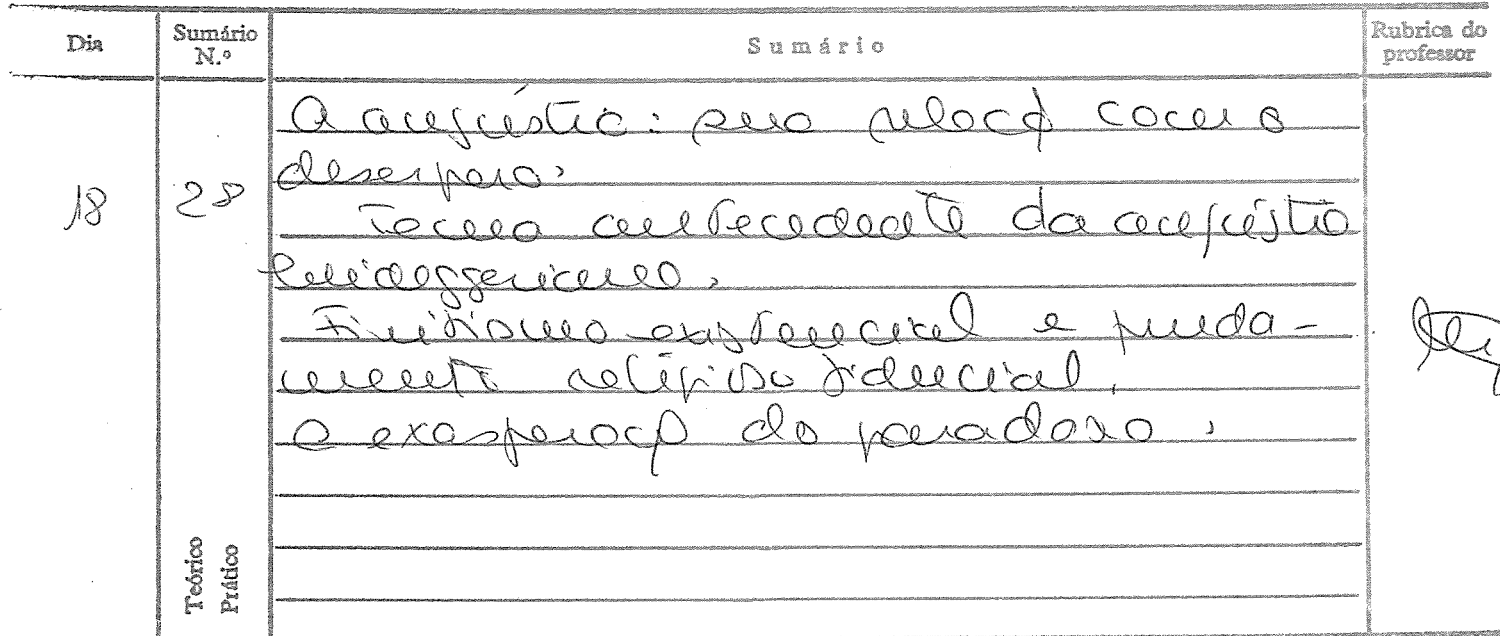 Dia
Sumário N.º
Sumário
Rubrica do professor
18
28
A angústia: sua relação com o
desespero.
Tema antecedente da angústia
heideggeriana.
Finitismo existencial e funda-
mento religioso fiducial.
A exasperação do paradoxo.
Teórico
Prático